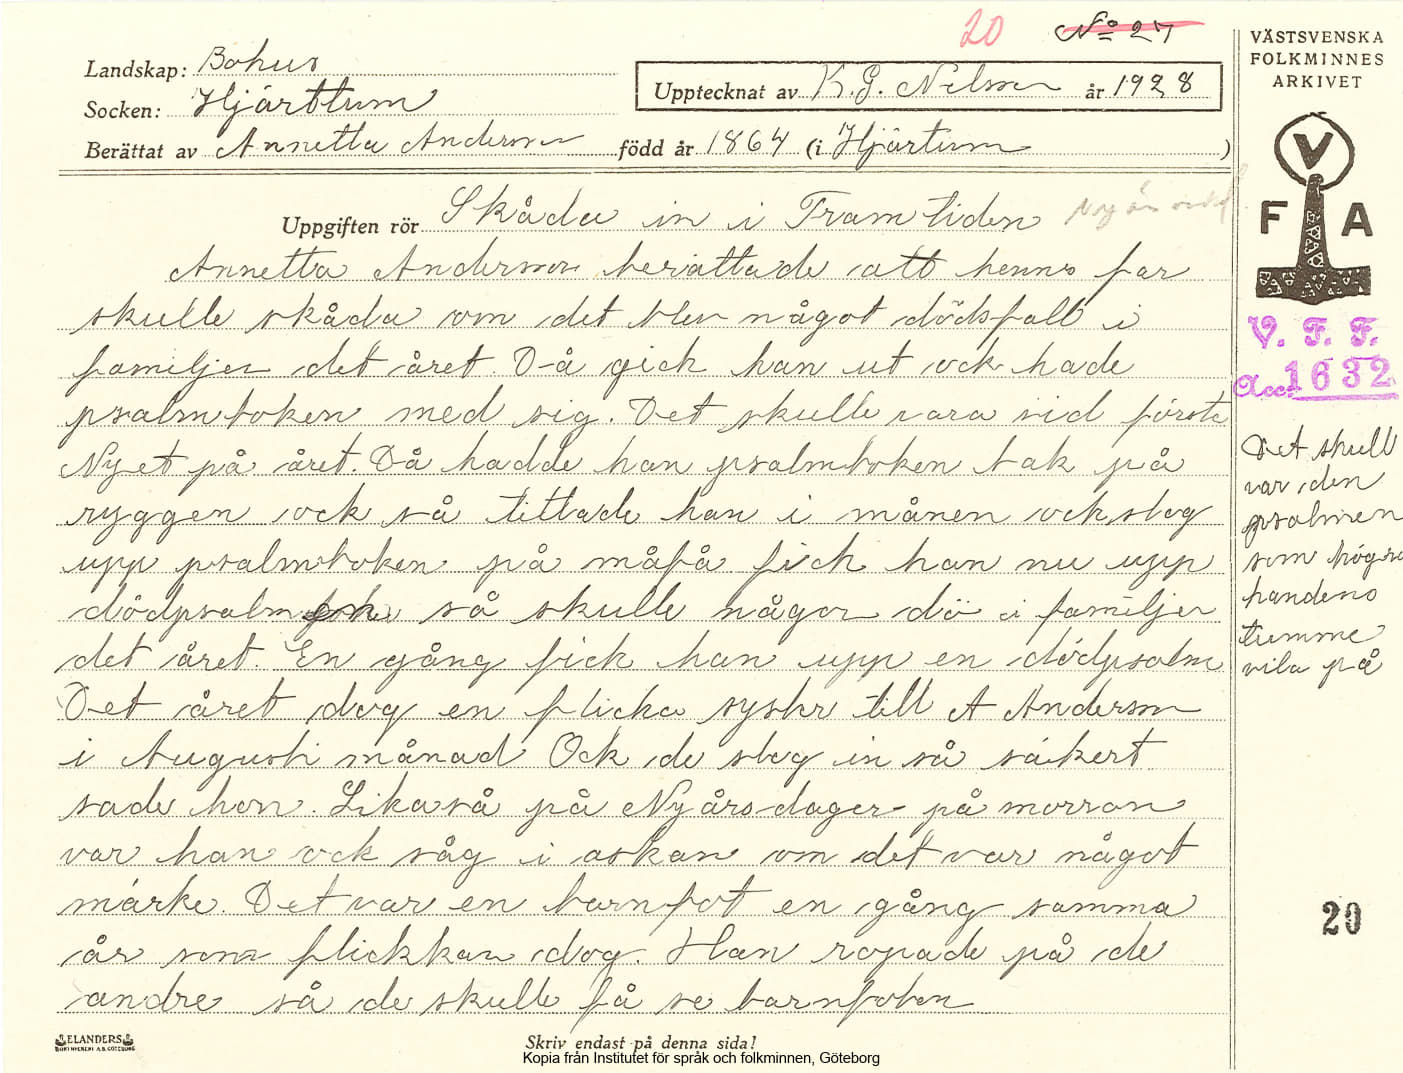 20 No 27
VÄSTSVENSKA
FOLKMINNES
ARKIVET
Landskap: Bohus
Upptecknat av K.G. Nilsson år 1928
Socken: Hjärttum
Berättat av Annetta Anderson född år 1864 (i Hjärtum)
V F A
Uppgiften rör Skåda in i Framtiden
Annetta Anderson berättade att henns far
skulle skåda om det blev något dödsfall i
familjen det året. Då gick han ut ock hade
psalmboken med sig. Det skulle vara vid första
Nyet på året. Då hadde han psalmboken bak på
ryggen ock så tittade han i månen ock slog
upp psalmboken på måfå fick han nu upp
dödpsalm så skulle någon dö i familjen
det året. En gång fick han upp en dödpsalm
Det året dog en flicka syster till A Anderson
i Augusti månad Ock de slog in så säkert
sade hon. Likaså på Nyårsdagen på morron
var han ock såg i askan om det var något
märke. Det var en barnfot en gång samma
år som flickkan dog. Han ropade på de
andre så de skulle få se barnfoten
V. F. F.
Acc. 1632
Det skull
var den
psalmen
som högra
handens
tumme
vila på
20
ELANDERS
BOKTRYCKERI A.B. GÖTEBORG
Skriv endast på denna sida!
Kopia från Institutet för språk och folkminnen, Göteborg